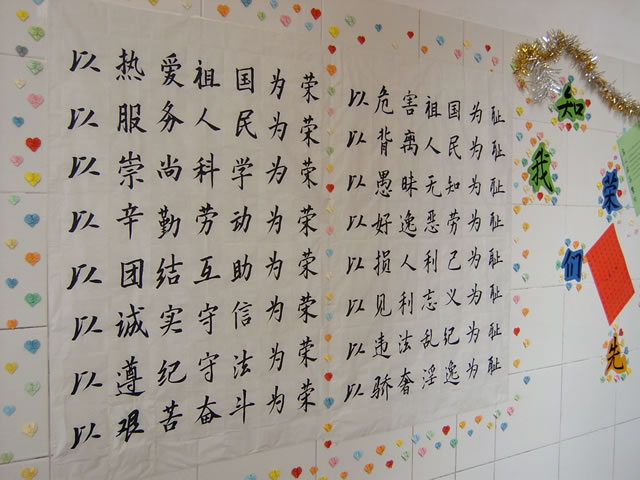 以热爱祖国为荣
以服务人民为荣
以崇尚科学为荣
以辛勤劳动为荣
以团结互助为荣
以诚实守信为荣
以遵纪守法为荣
以艰苦奋斗为荣
以危害祖国为耻
以背离人民为耻
以愚昧无知为耻
以好逸恶劳为耻
以损人利己为耻
以见利忘义为耻
以违法乱纪为耻
以骄奢淫逸为耻
知荣
我们先